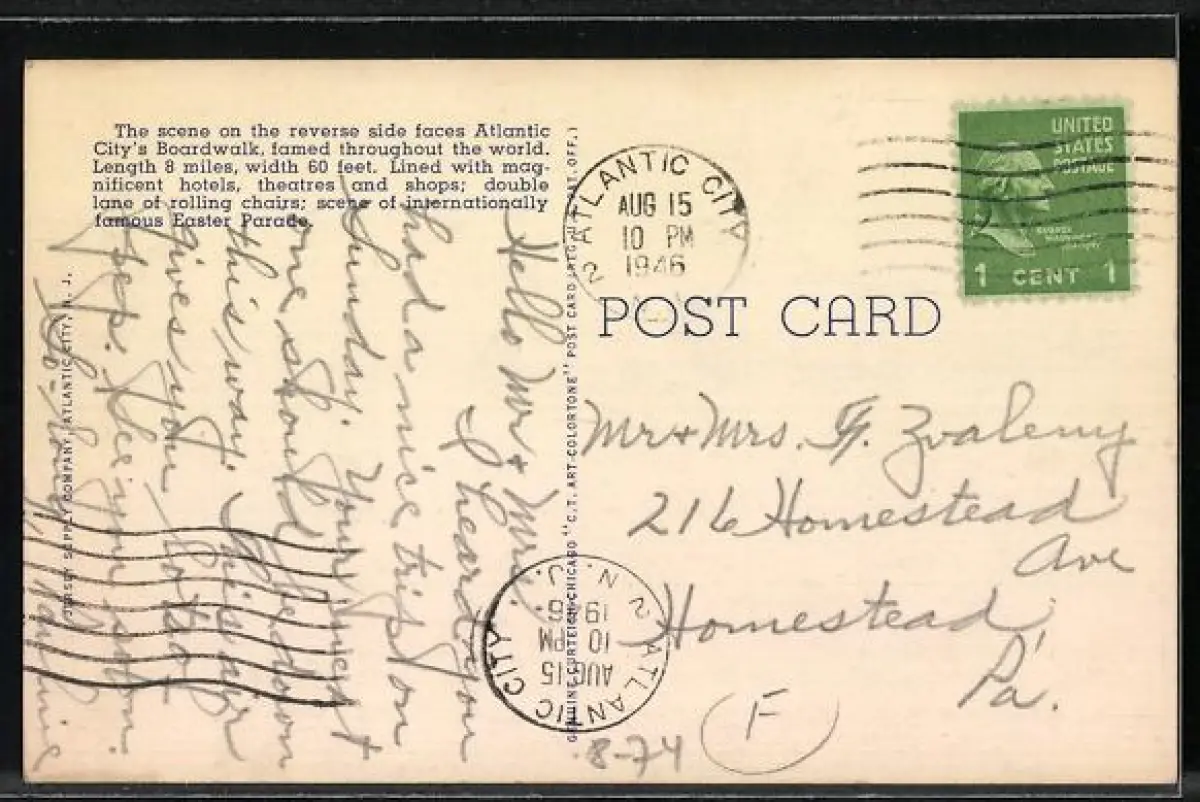 The scene on the reverse side faces Atlantic
City's Boardwalk, famed throughout the world.
Length 8 miles, width 60 feet. Lined with mag-
nificent hotels, theatres and shops; double
lane of rolling chairs; scene of internationally
famous Easter Parade.
JERSEY SUPPLY COMPANY, ATLANTIC CITY, N. J.
Hello Mr & Mrs.
I heard you
had a nice trip on
Sunday. Your next
one should be down
this way. This air
gives you lots of
pep. See you soon.
GENUINE CURTEICH-CHICAGO "C.T. ART-COLORTONE" POST CARD (REG. U.S. PAT. OFF.)
ATLANTIC CITY
2
AUG 15
10 PM
1946
UNITED
STATES
POSTAGE
1 CENT 1
POST CARD
Mr & Mrs. F. Zvaleny
216 Homestead
Ave
Homestead
Pa.
ATLANTIC CITY
2 N. J.
AUG 15
10 PM
1946
8-74
F